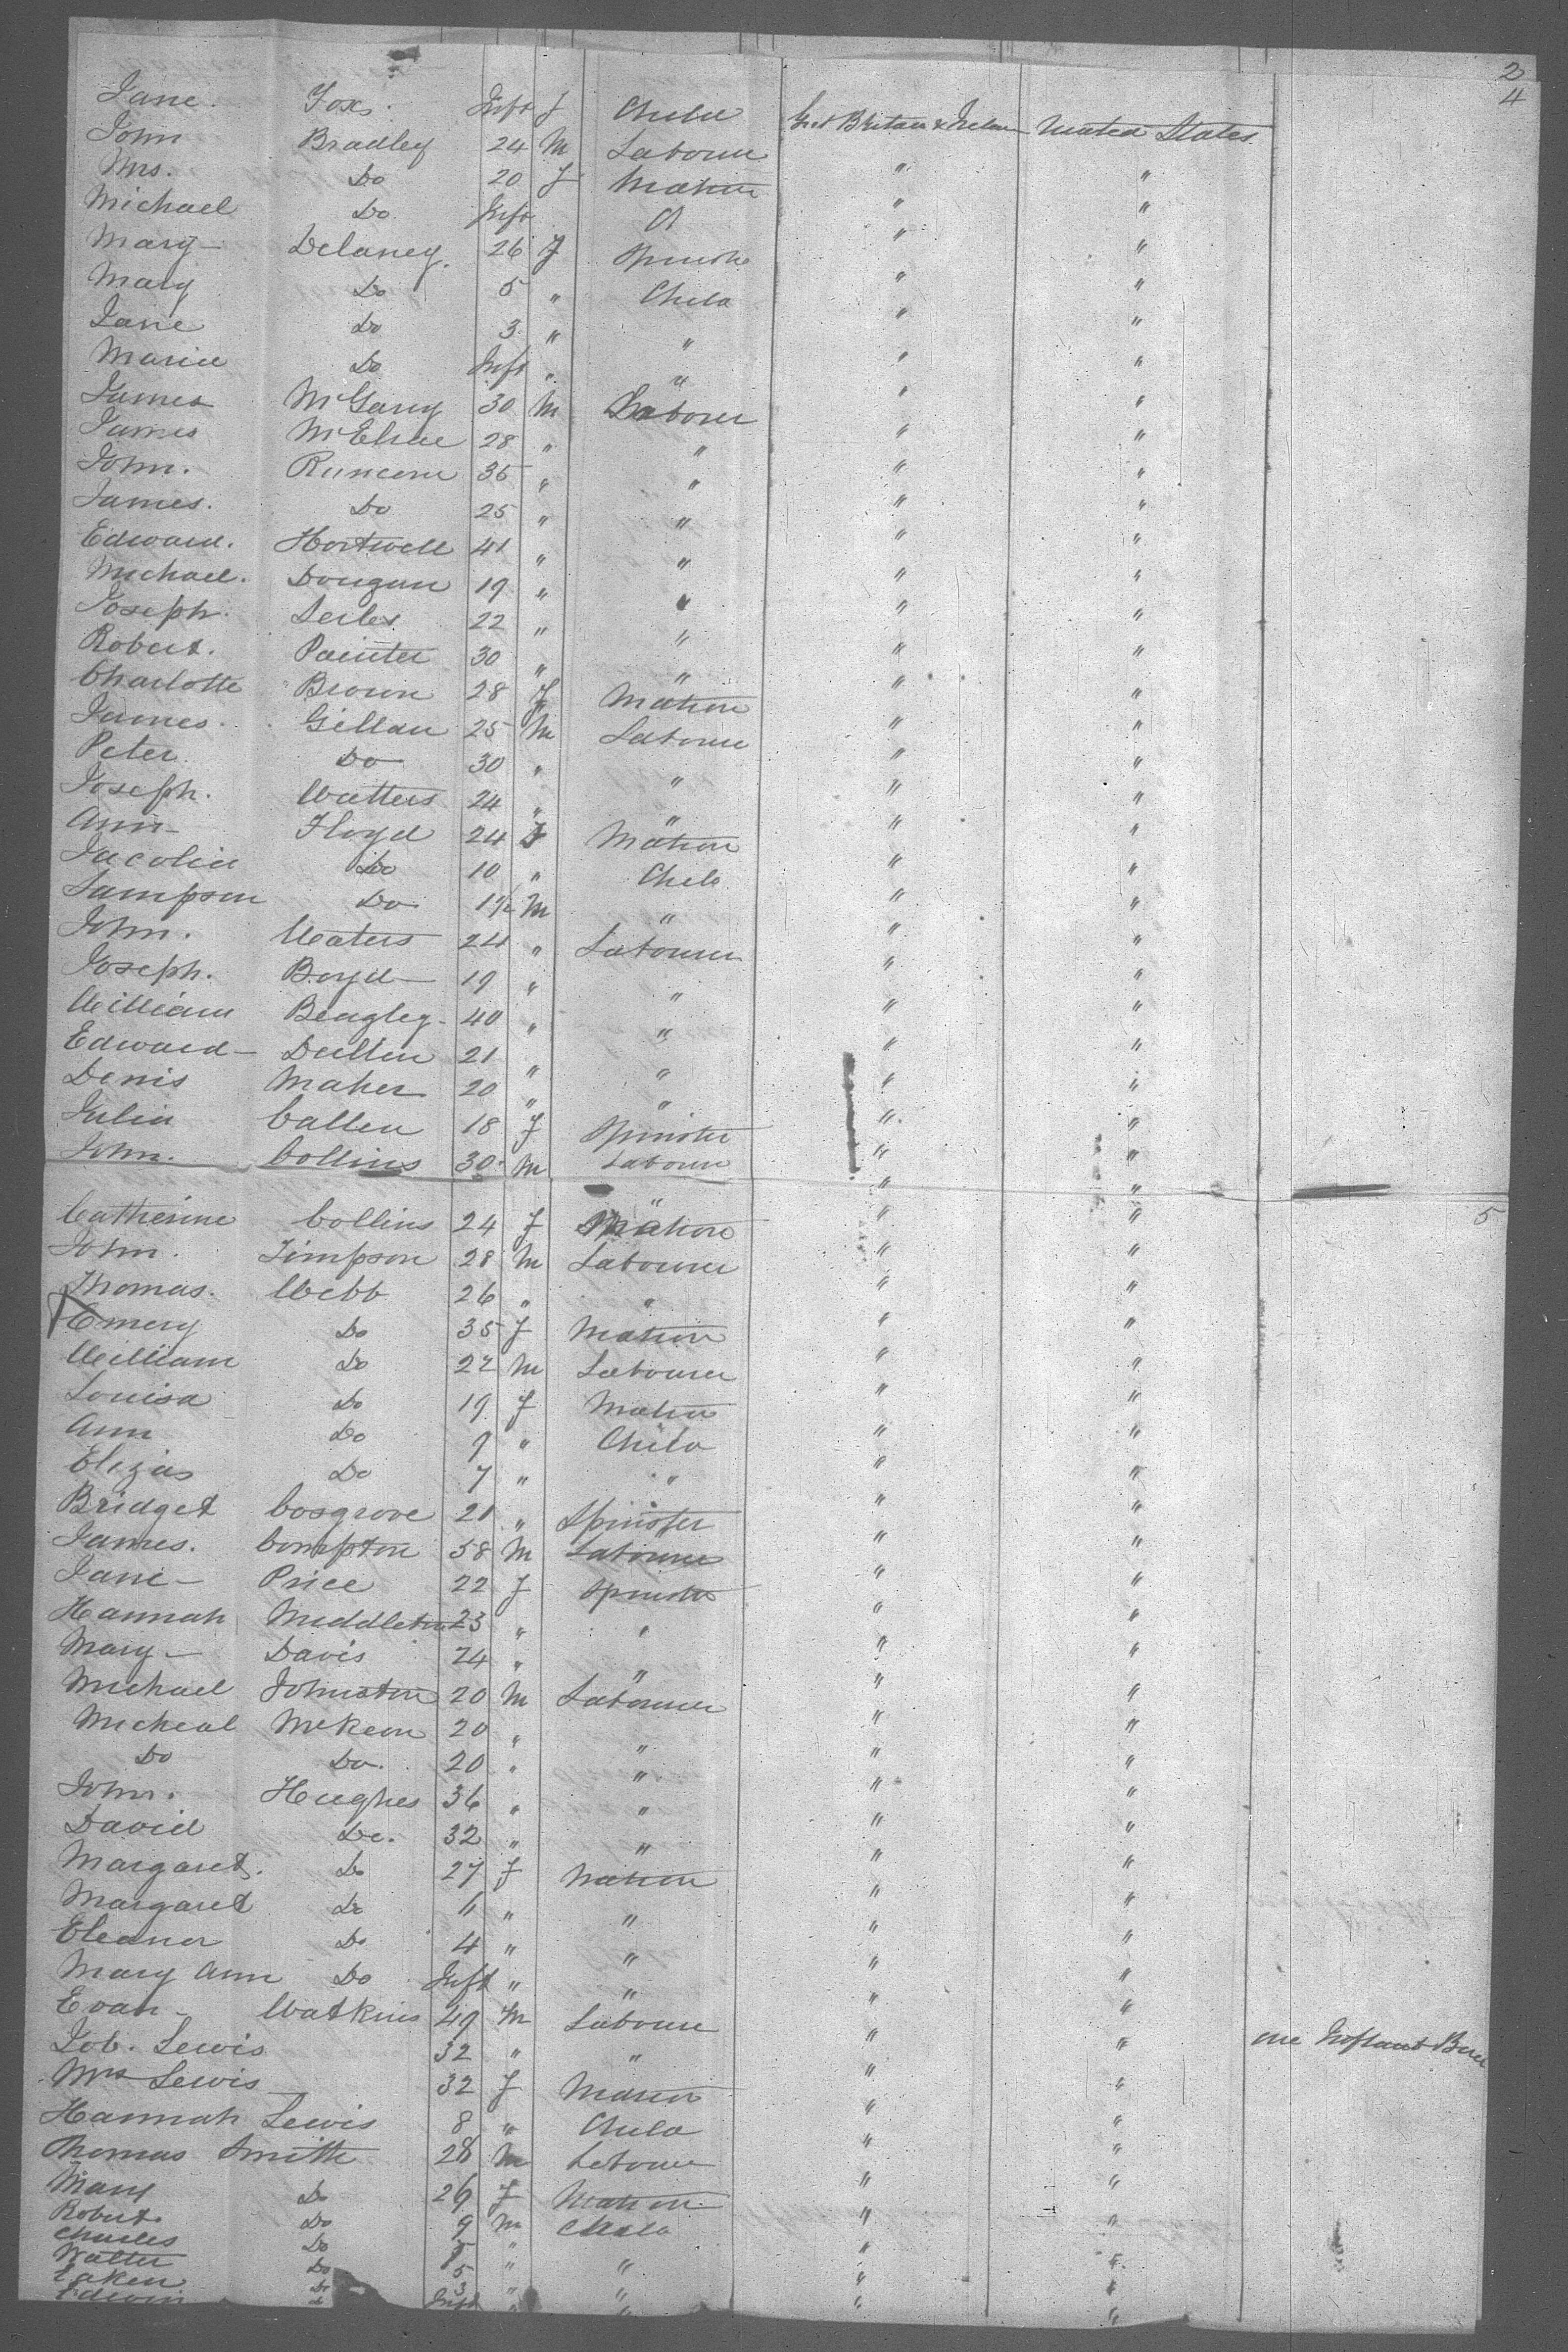 2
4
Jane. Fox. Inft f Child Gt Britain & Ireland United States
John Bradley 24 M Labourer " "
Mrs. Do 20 f Matron " "
Michael Do Inft " "
Mary Delaney. 26 f Spinster " "
Mary Do 5 " Child " "
Jane Do 3 " " " "
Maria Do Inft " " " "
James McGarry 30 M Laborer " "
James 28 " " " "
John. 35 " " " "
James. Do 25 " " " "
Edward. Hartwell 41 " " " "
Michael. Dougan 19 " " " "
Joseph. 22 " " " "
Robert. Painter 30 " " " "
Charlotte Brown 28 f Matron " "
James. Gillan 25 M Labourer " "
Peter Do 30 " " " "
Joseph. Watters 24 " " " "
Ann Floyd 24 f Matron " "
Do 10 " Child " "
Sampson Do M " " "
John. Waters 24 " Labourer " "
Joseph. Boyd 19 " " " "
William Beagley 40 " " " "
Edward 21 " " " "
Denis Maher 20 " " " "
Julia Callen 18 f Spinster " "
John. Collins 30 M Labourer " "
5
Catherine Collins 24 f Matron " "
John. Simpson 28 M Labourer " "
Thomas. Webb 26 " " " "
Emery Do 35 f Matron " "
William Do 22 M Labourer " "
Louisa Do 19 f Matron " "
Ann Do 9 " Child " "
Elizas Do 7 " " " "
Bridget Cosgrove 21 " Spinster " "
James. Compton 58 M Labourer " "
Jane Price 22 f Spinster " "
Hannah Middleton 23 " " " "
Mary Davis 24 " " " "
Michael Johnston 20 M Labourer " "
Micheal McKeon 20 " " " "
Do Do. 20 " " " "
John. Hughes 36 " " " "
David Do. 32 " " " "
Margaret. Do 27 f Matron " "
Margaret Do 11 " " " "
Eleanor Do 4 " " " "
Mary Ann Do Inft " " " "
Evan Watkins 49 M Labourer " "
Job. Lewis 32 " " " " one Inftant
Mrs Lewis 32 f Matron " "
Hannah Lewis 8 " Child " "
Thomas Smith 28 M Labourer " "
Mary Do 26 f Matron " "
Robert. Do 9 M Child " "
Charles Do " " "
Walter Do 5 " " " "
Do 3 " " " "
Edwin Inft " "